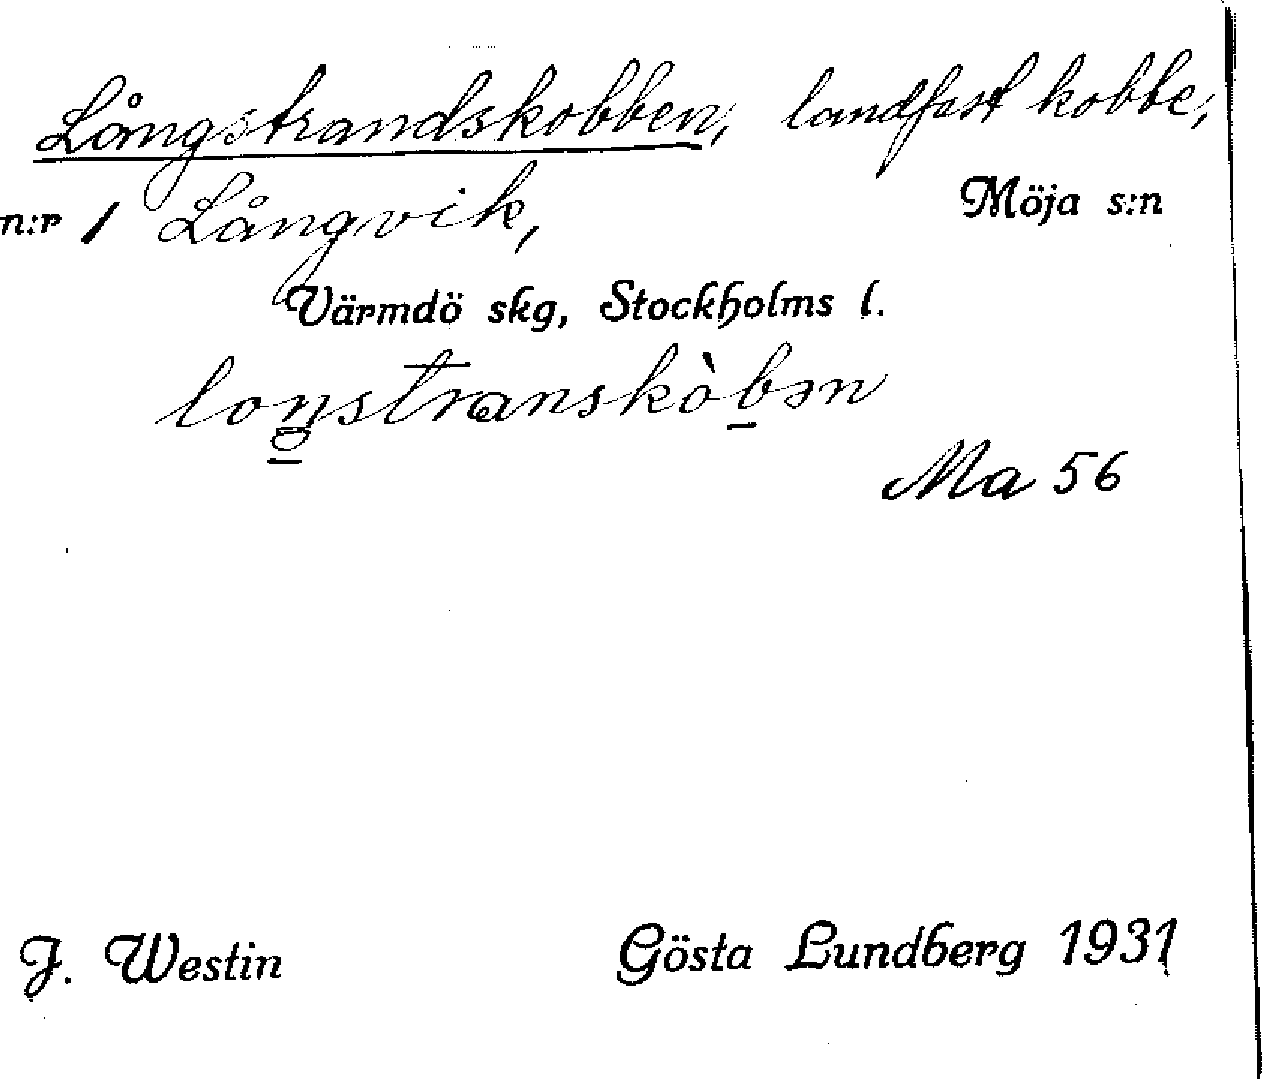 Långstrandskobben, landfast kobbe,
n:r 1 Långvik, Möja s:n
Värmdö skg, Stockholms l.
Ma 56
J. Westin Gösta Lundberg 1931